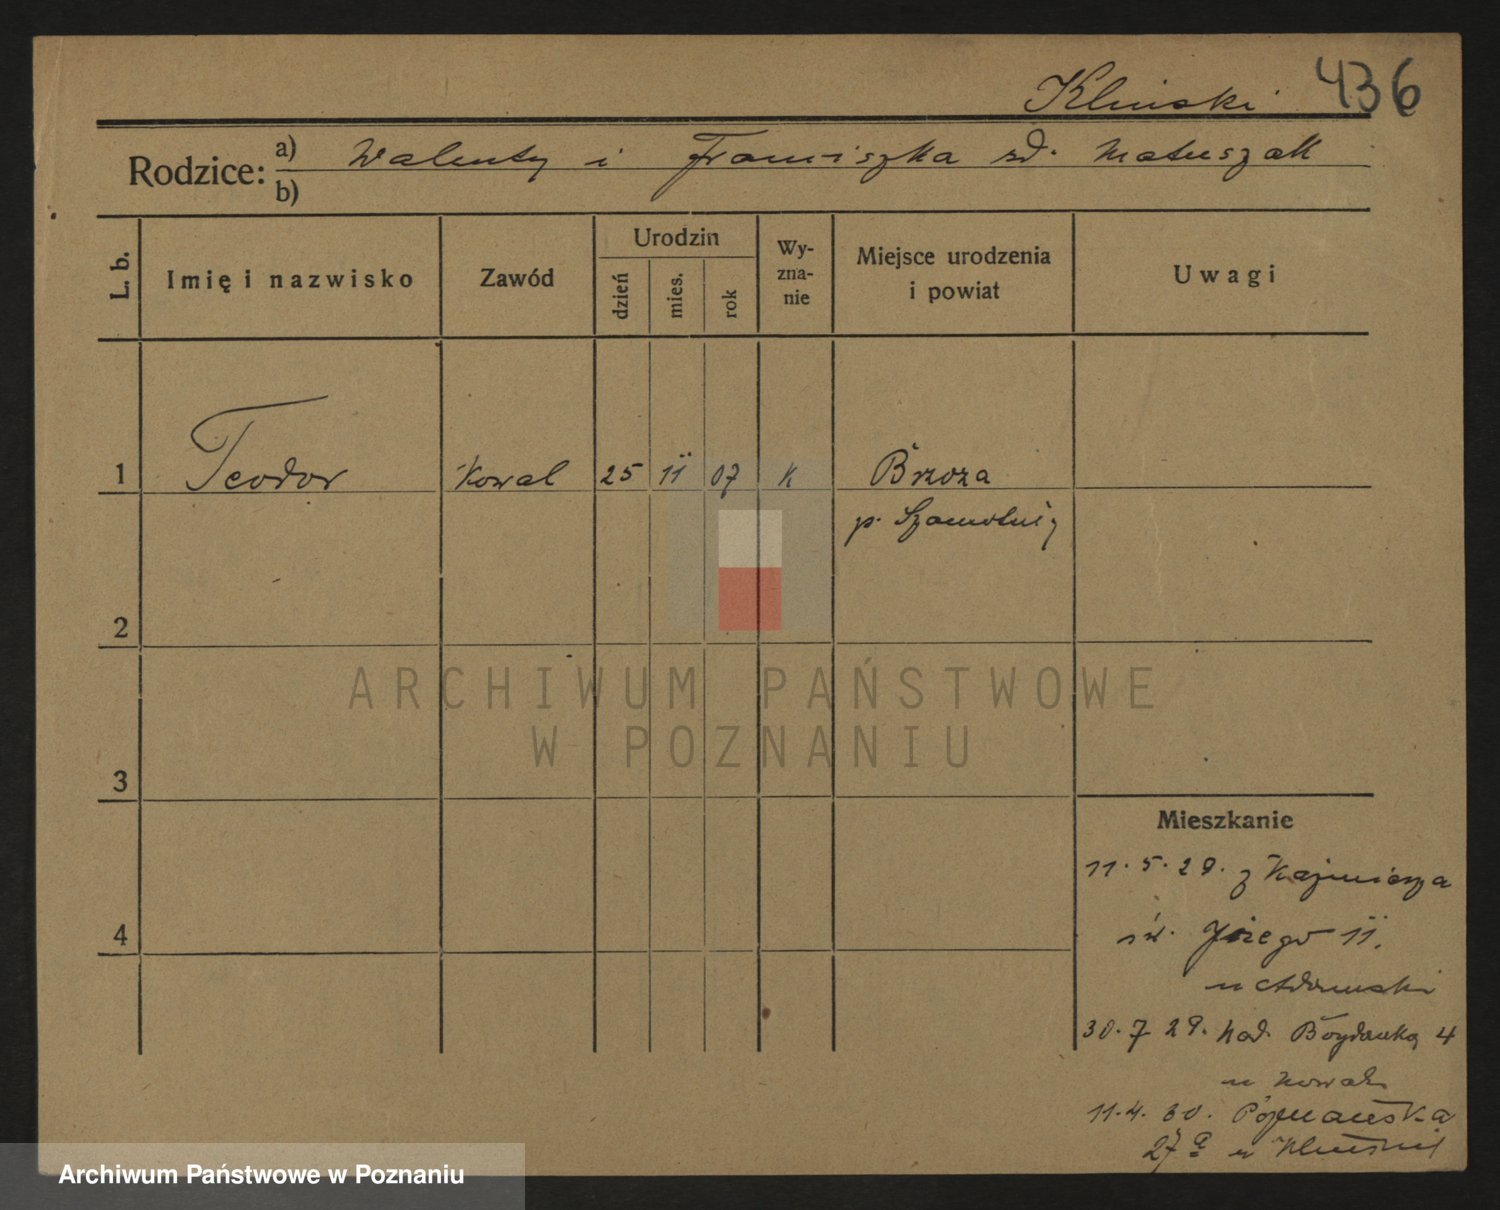 Kliński 436
Rodzice: a) Walenty i Franciszka zd. Matuszak
b)
L. b.
Imię i nazwisko
Zawód
Urodzin
dzień
mies.
rok
Wy-
zna-
nie
Miejsce urodzenia
i powiat
Uwagi
1 Teodor Kowal 25 11 07 K Brzoza
p. Szamotuły
2
ARCHIWUM PAŃSTWOWE
W POZNANIU
3
Mieszkanie
11.5.29. z Kaźmierza
św. Jerzego 11.
4
30.7 29. Nad Bogdanką 4
u Nowak
11.4.30. Poznańska
27a u
Archiwum Państwowe w Poznaniu